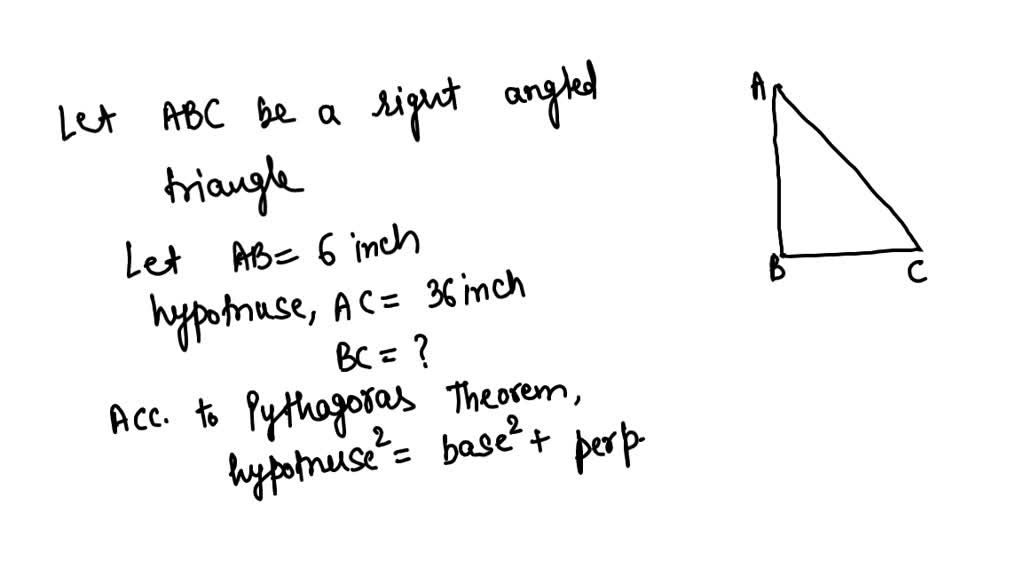 Let ABC be a right angled
triangle
Let AB= 6 inch
hypotnuse, AC= 36 inch
BC = ?
Acc. to Pythagoras Theorem,
hypotnuse² = base² + perp.
A
B
C